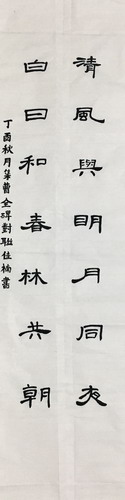 清風與明月同夜
白日和春林共朝
丁酉秋月集曹全碑對聯任楠書